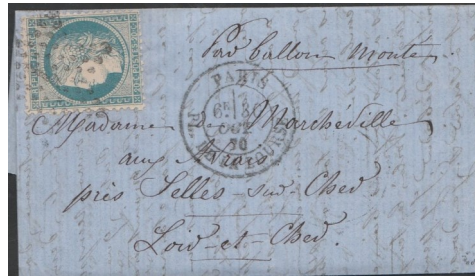 Par ballon monté
PARIS
OCT
70
Madame de Marchéville
aux Marais
près Selles-sur-Cher
Loir-et-Cher.